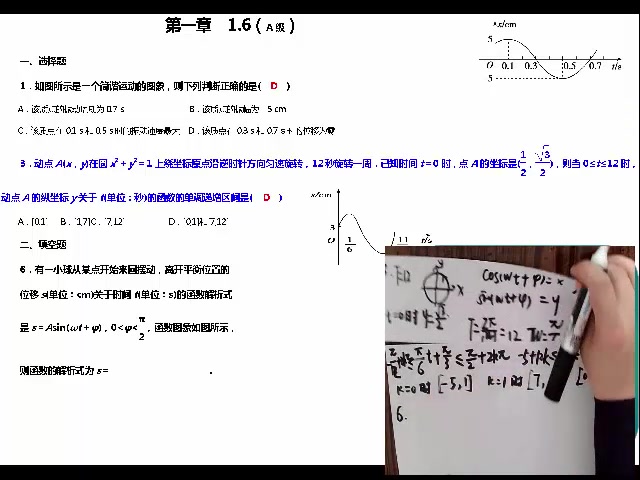 第一章 1.6（A级）
一、选择题
1．如图所示是一个简谐运动的图象，则下列判断正确的是( D )
x/cm
5
O 0.1 0.3 0.5 0.7 t/s
5
A．该质点的振动周期为0.7 s B．该质点的振幅为 5 cm
C．该质点在0.1 s和0.5 s时的振动速度最大 D．该质点在0.3 s和0.7 s
3．动点A(x，y)在圆x²＋y²＝1上绕坐标原点沿逆时针方向匀速旋转，12秒旋转一周．已知时间t＝0时，点A的坐标是(1/2，√3/2)，则当0≤t≤12时，
动点A的纵坐标y关于t(单位：秒)的函数的单调递增区间是( D )
A．[0,1] B．[1,7] C．[7,12] D．[0,1]和[7,12]
二、填空题
x/cm
3
O 1/6 11 t/s
6．有一小球从某点开始来回摆动，离开平衡位置的
位移s(单位：cm)关于时间t(单位：s)的函数解析式
是s＝Asin(ωt＋φ)，0<φ<π/2，函数图象如图所示，
则函数的解析式为s＝
T=12
y
x
cos(wt+φ)=x
sin(wt+φ)=y
t=0时 y=√3/2
=12
π/6 t+π/3≤π/2+2kπ
k=0时 [-5,1] k=1时 [7,
6.